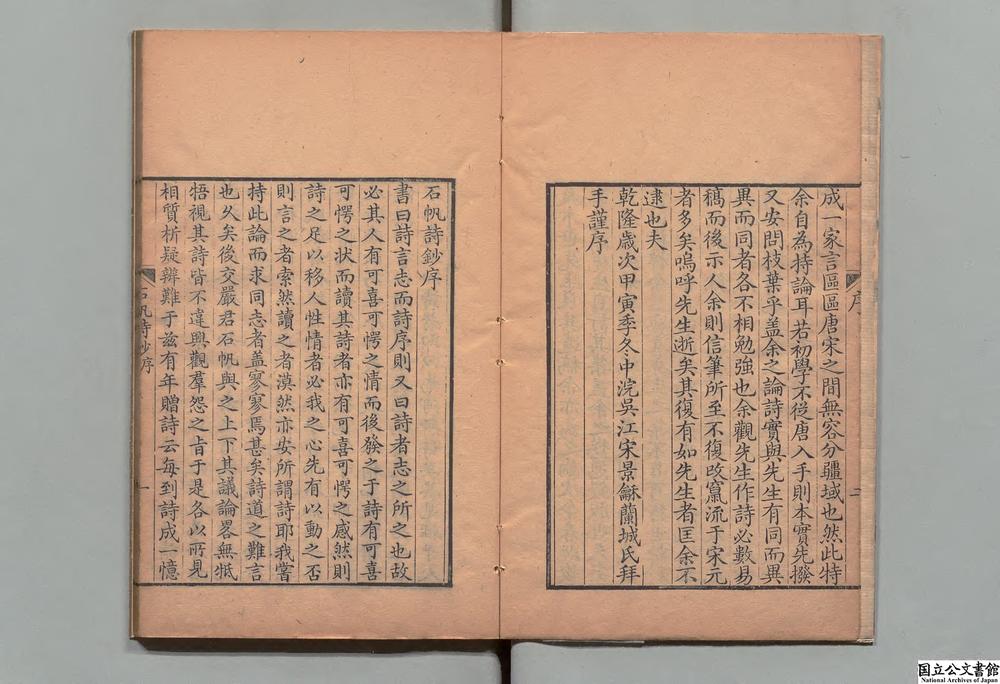 成一家言區區唐宋之間無容分疆域也然此特
余自為持論耳若初學不從唐入手則本實先撥
又安問枝葉乎盖余之論詩實與先生有同而異
異而同者各不相勉強也余觀先生作詩必數易
稿而後示人余則信筆所至不復改竄流于宋元
者多矣嗚呼先生逝矣其復有如先生者匡余不
逮也夫
乾隆歲次甲寅季冬中浣吳江宋景龢蘭城氏拜
手謹序
序
二
石帆詩鈔序
書曰詩言志而詩序則又曰詩者志之所之也故
必其人有可喜可愕之情而後發之于詩有可喜
可愕之状而讀其詩者亦有可喜可愕之感然則
詩之足以移人性情者必我之心先有以動之否
則言之者索然讀之者漠然亦安所謂詩耶我嘗
持此論而求同志者盖寥寥焉甚矣詩道之難言
也久矣後交嚴君石帆與之上下其議論畧無牴
牾視其詩皆不違興觀羣怨之旨于是各以所見
相質析疑辨難于兹有年贈詩云每到詩成一憶
石帆詩鈔序
一
国立公文書館
National Archives of Japan